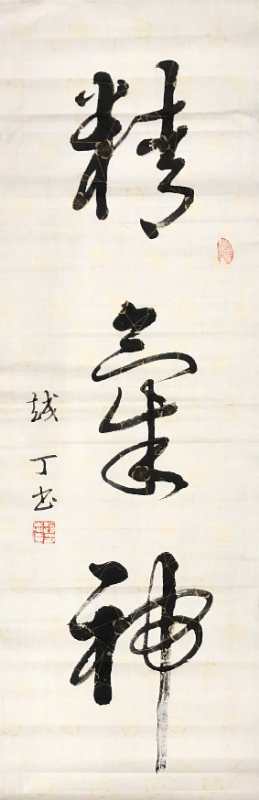 精氣神
越丁书